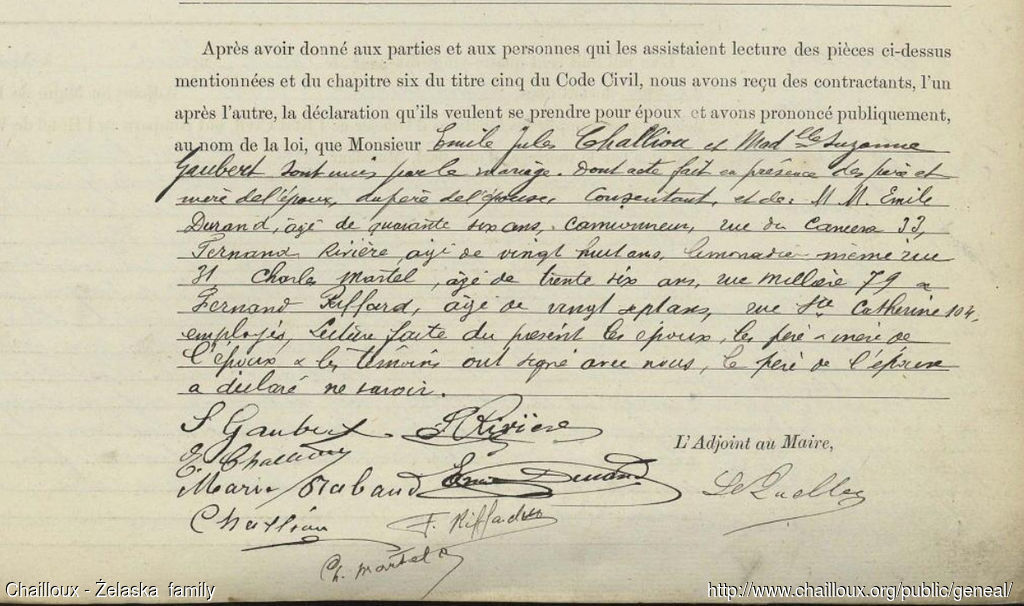 Après avoir donné aux parties et aux personnes qui les assistaient lecture des pièces ci-dessus
mentionnées et du chapitre six du titre cinq du Code Civil, nous avons reçu des contractants, l'un
après l'autre, la déclaration qu'ils veulent se prendre pour époux et avons prononcé publiquement,
au nom de la loi, que Monsieur Emile Jules Challiou et Mad^lle Suzanne
Gaubert sont unis par le mariage. Dont acte fait en présence des père et
mère de l'époux, du père de l'épouse, consentant, et de: M M. Emile
Durand, âgé de quarante six ans, camionneur, rue du 33,
Fernand Rivière, âgé de vingt huit ans, limonadier même rue
31 Charles Martel, âgé de trente six ans, rue Millière 79 &
Fernand Riffard, âgé de vingt sept ans, rue Ste Catherine 104,
employés, Lecture faite du présent les époux, les père & mère de
l'époux & les témoins ont signé avec nous, le père de l'épouse
a déclaré ne savoir.
S Gaubert. F Rivière
L'Adjoint au Maire,
E. Challiou
Marie Rabaud Emile Durand
Challiou F. Riffard
Ch. Martel
Chailloux - Żelaska family
http://www.chailloux.org/public/geneal/